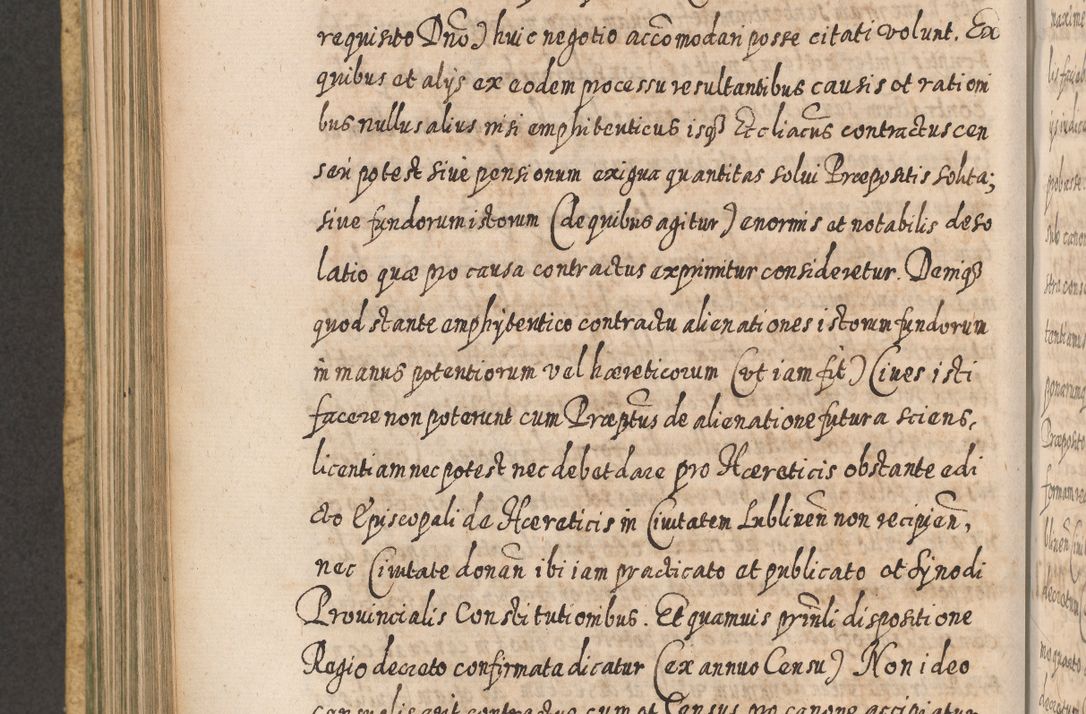 requisito Dn̄o) huic negotio accōmodari posse citati volunt. Ex
quibus et alijs ex eodem processu resultantibus causis et rationi
bus nullus alius nisi emphiteuticus isq3 Eccl̄iacus contractus cen
seri potest siue pensionum exigua quantitas solui Præpositis solita;
siue fundorum istorum (de quibus agitur) enormis et notabilis deso
latio quæ pro causa contractus exprimitur consideretur. Deniq3
quod stante emphyteutico contractu alienationes istorum fundorum
in manus potentiorum vel hæreticorum (vt iam fit) Ciues isti
facere non poterunt cum Præptūs de alienatione futura sciens,
licentiam nec potest nec debet dare pro Hæreticis obstante edi
cto Episcopali de Hæreticis in Ciuitatem Lublinen̄ non recipien̄,
nec Ciuitate donan̄ ibi iam practicato et publicato et Synodi
Prouincialis Constitutionibus. Et quamuis prin̄li dispositione
Regio decreto confirmata dicatur (ex annuo Censu) Non ideo